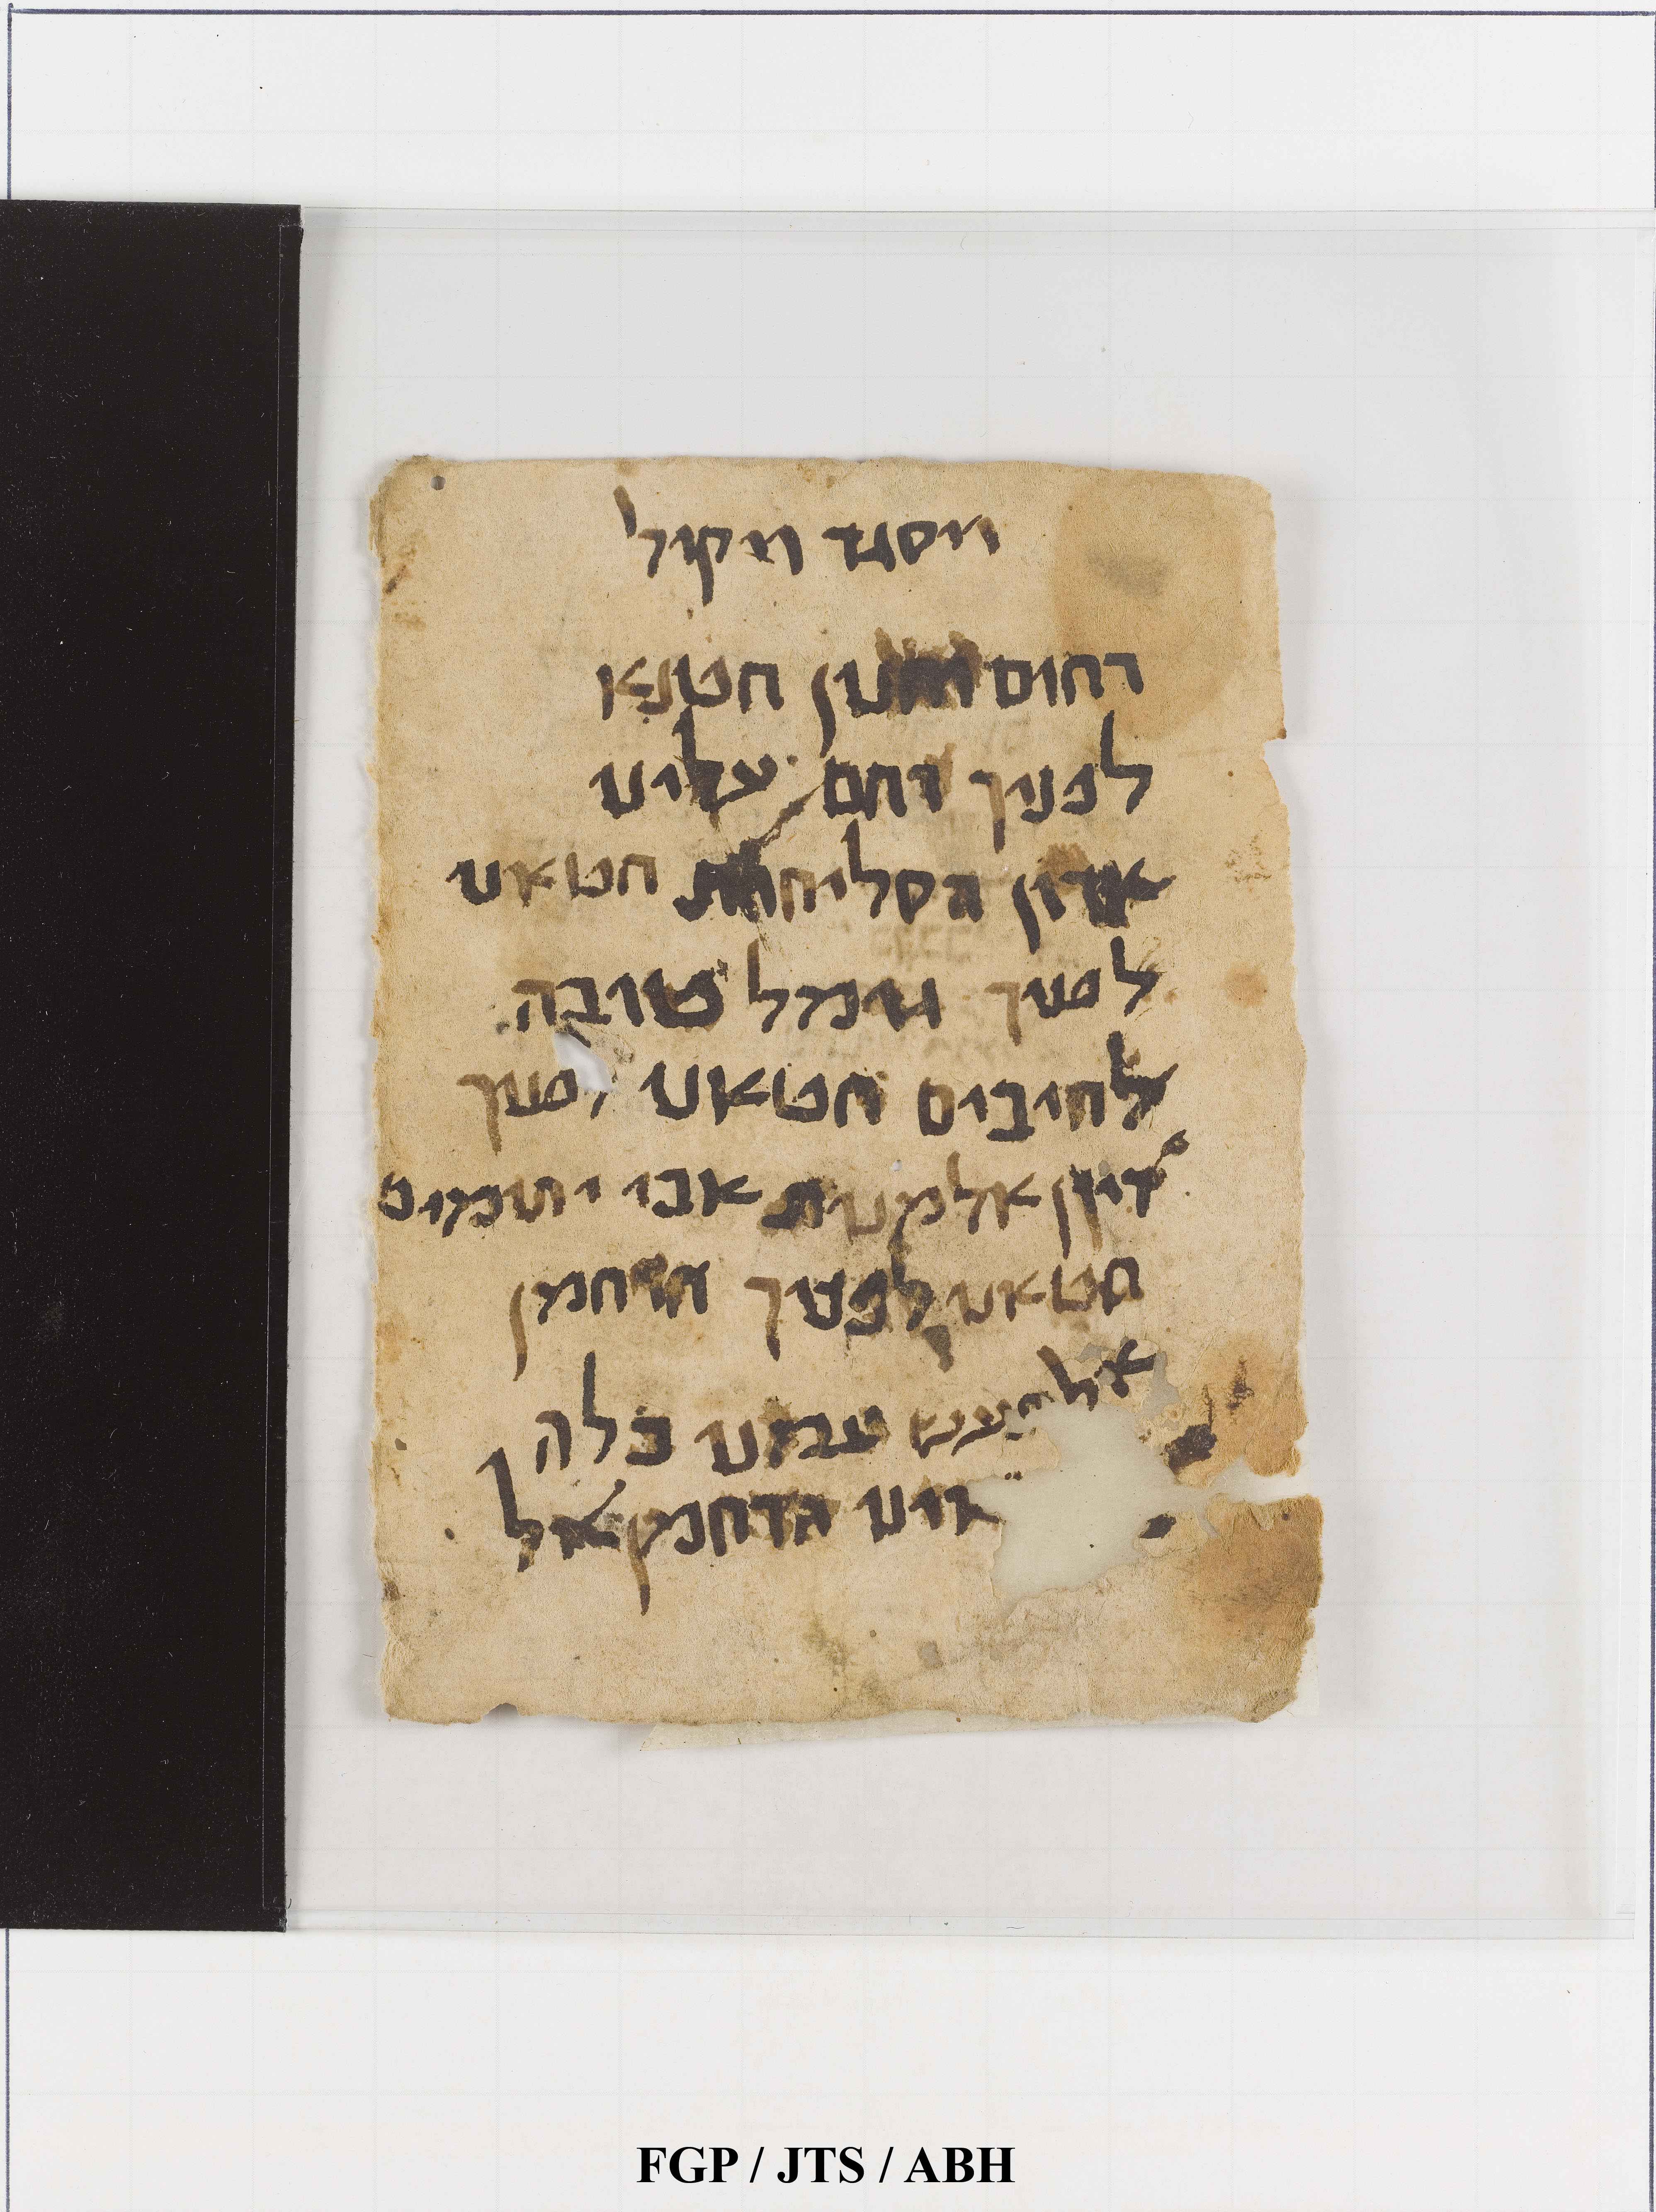 ויסגד ויקול
רחום וחנון חטאנו
לפניך רחם עלינו
אדון הסליחות חטאנו
לפניך גומל טובה
לחייבים חטאנו לפניך
דיין אלמנות אבי יתומים
חטאנו לפניך הרחמן
עמנו כלה
אל
FGP / JTS / ABH